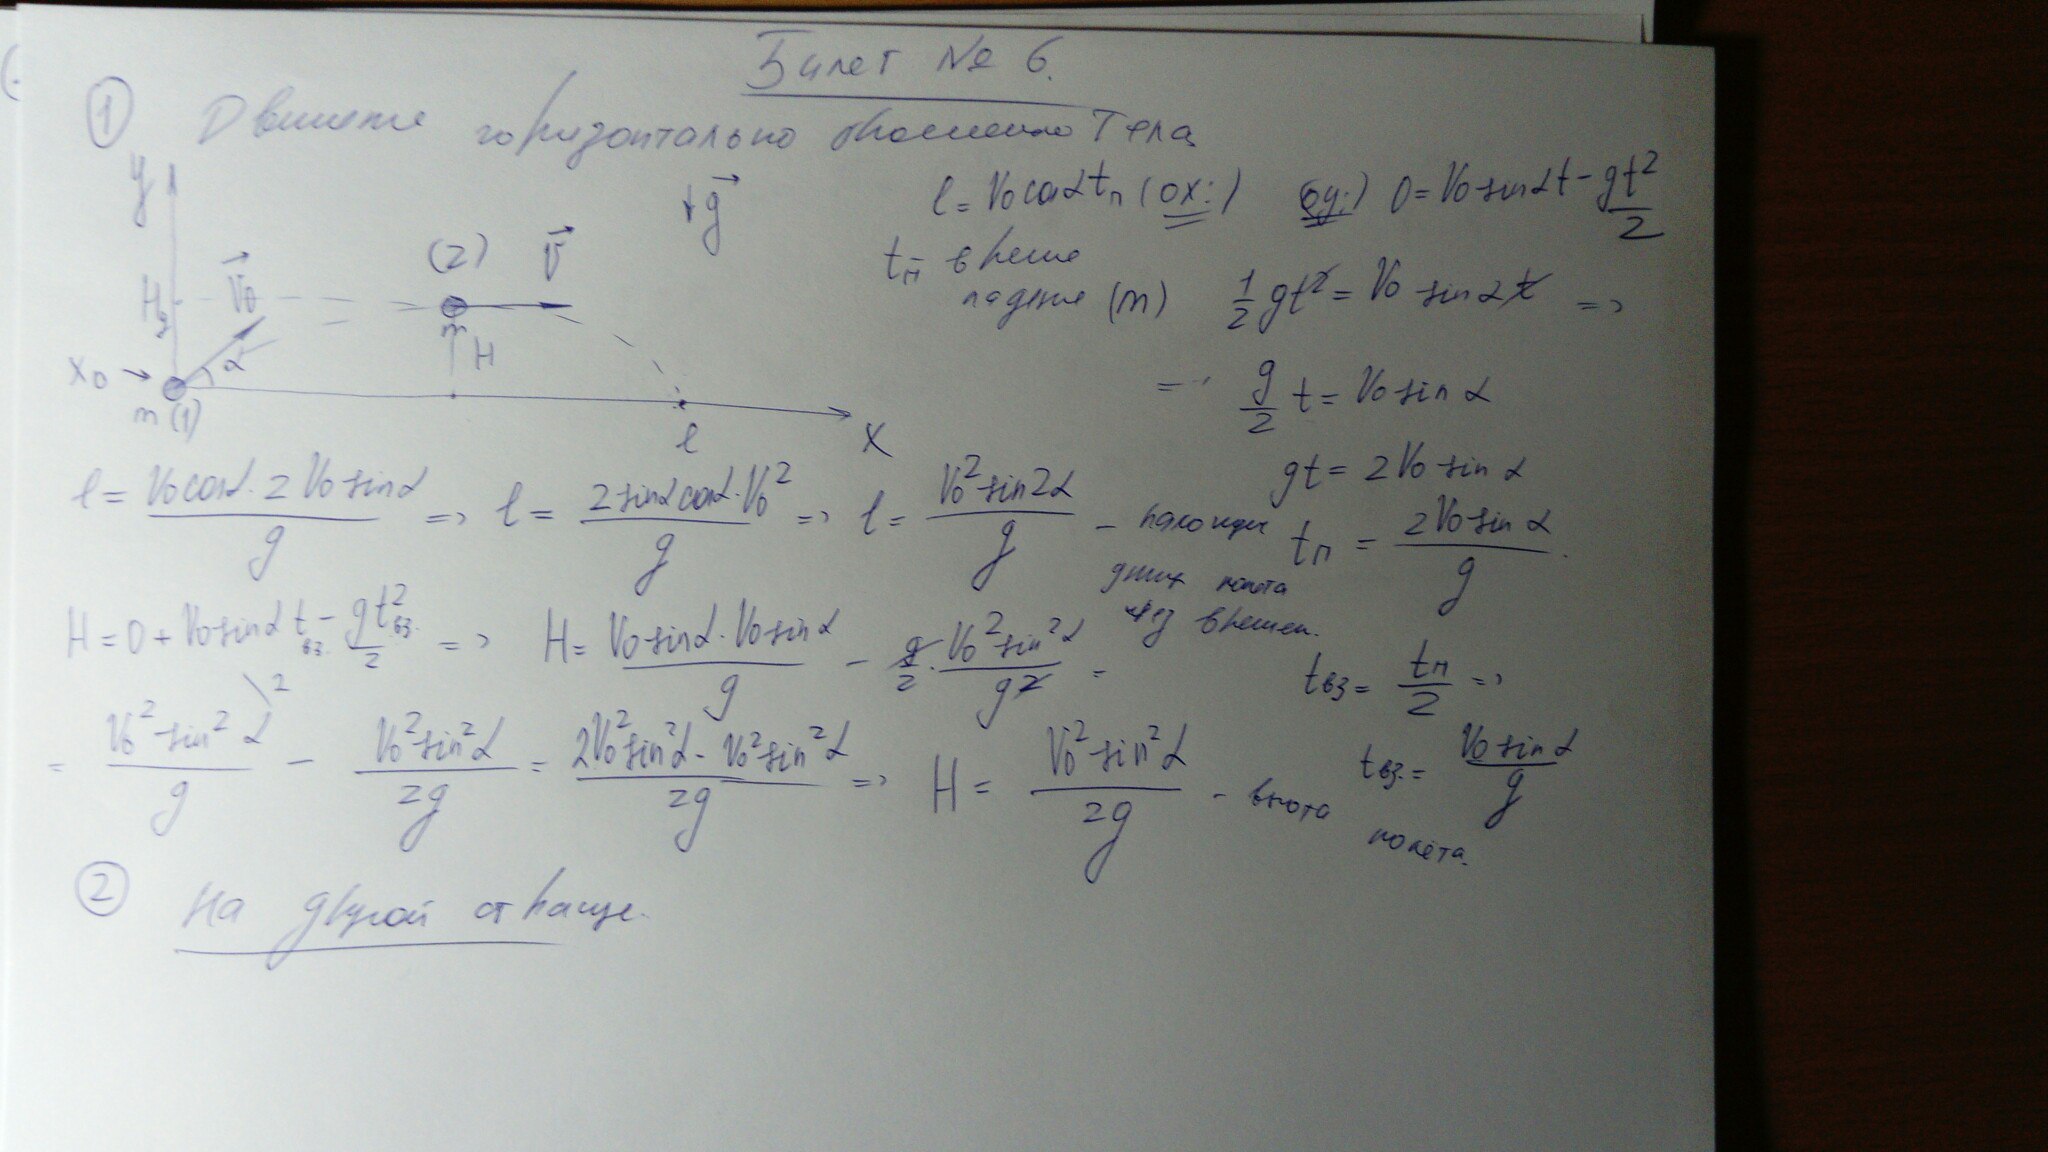 Билет № 6.
① Движение горизонтально брошенного тела
y
↓g⃗
l = V₀cosα tп (ox:) oy:) 0 = V₀ sinα t - gt²/2
(2) V⃗
V⃗₀
H
tп - время падения (m)
½ gt² = V₀ sinα t =>
m
H
x₀ → α
m (1)
l
x
=> g/2 t = V₀ sin α
gt = 2V₀ sin α
l = V₀cosα · 2V₀ sinα / g => l = 2 sinα cosα · V₀² / g => l = V₀² sin2α / g - находим длину полёта через время.
tп = 2V₀ sin α / g.
H = 0 + V₀ sinα tвз. - gt²вз. / 2 => H = V₀ sinα · V₀ sinα / g - g/2 · V₀² sin²α / g² =
tвз = tп / 2 =>
= V₀² sin²α / g \² - V₀² sin²α / 2g = 2V₀² sin²α - V₀² sin²α / 2g => H = V₀² sin²α / 2g - высота полёта.
tвз. = V₀ sinα / g
② На другой странице.